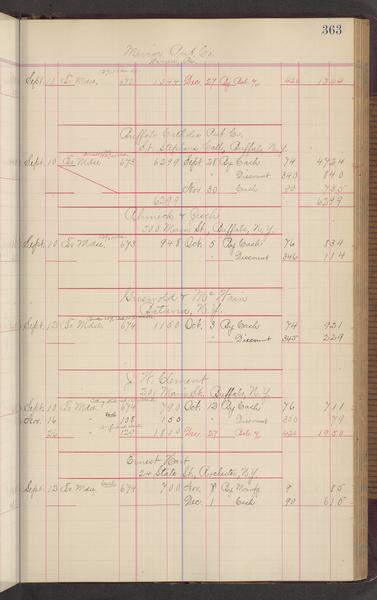 363
Mirror Pub. Co.
Sept. 10 To Mdse. 672 1244 Dec. 27 By Bal. 420 1244
Buffalo Catholic Pub. Co.
St. Stephens Hall, Buffalo, N.Y.
Sept. 10 To Mdse. 673 6299 Sept. 28 By Cash 74 4724
" Discount 340 840
Nov. 30 Cash 90 735
6299 6299
& Esch
500 Main St., Buffalo, N.Y.
Sept. 10 To Mdse. 673 948 Oct. 5 By Cash 76 834
" Discount 346 114
Griswold & McWain
Batavia, N.Y.
Sept. 12 To Mdse. 674 1150 Oct. 3 By Cash 74 921
" Discount 345 229
J. W. Clement
201 Main St., Buffalo, N.Y.
Sept. 10 To Mdse. 674 790 Oct. 12 By Cash 76 711
Nov. 16 " 108 150 Discount 350 79
26 " 120 1800 Dec. 27 Bal. 420 1950
Ernest Hart
24 State St., Rochester, N.Y.
Sept. 12 To Mdse. 674 700 Nov. 9 By Manfg. 9 85
Dec. 1 Cash 90 615